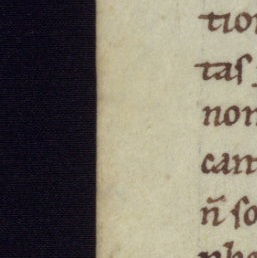 tion
taſ
non
can
n̄ ſo